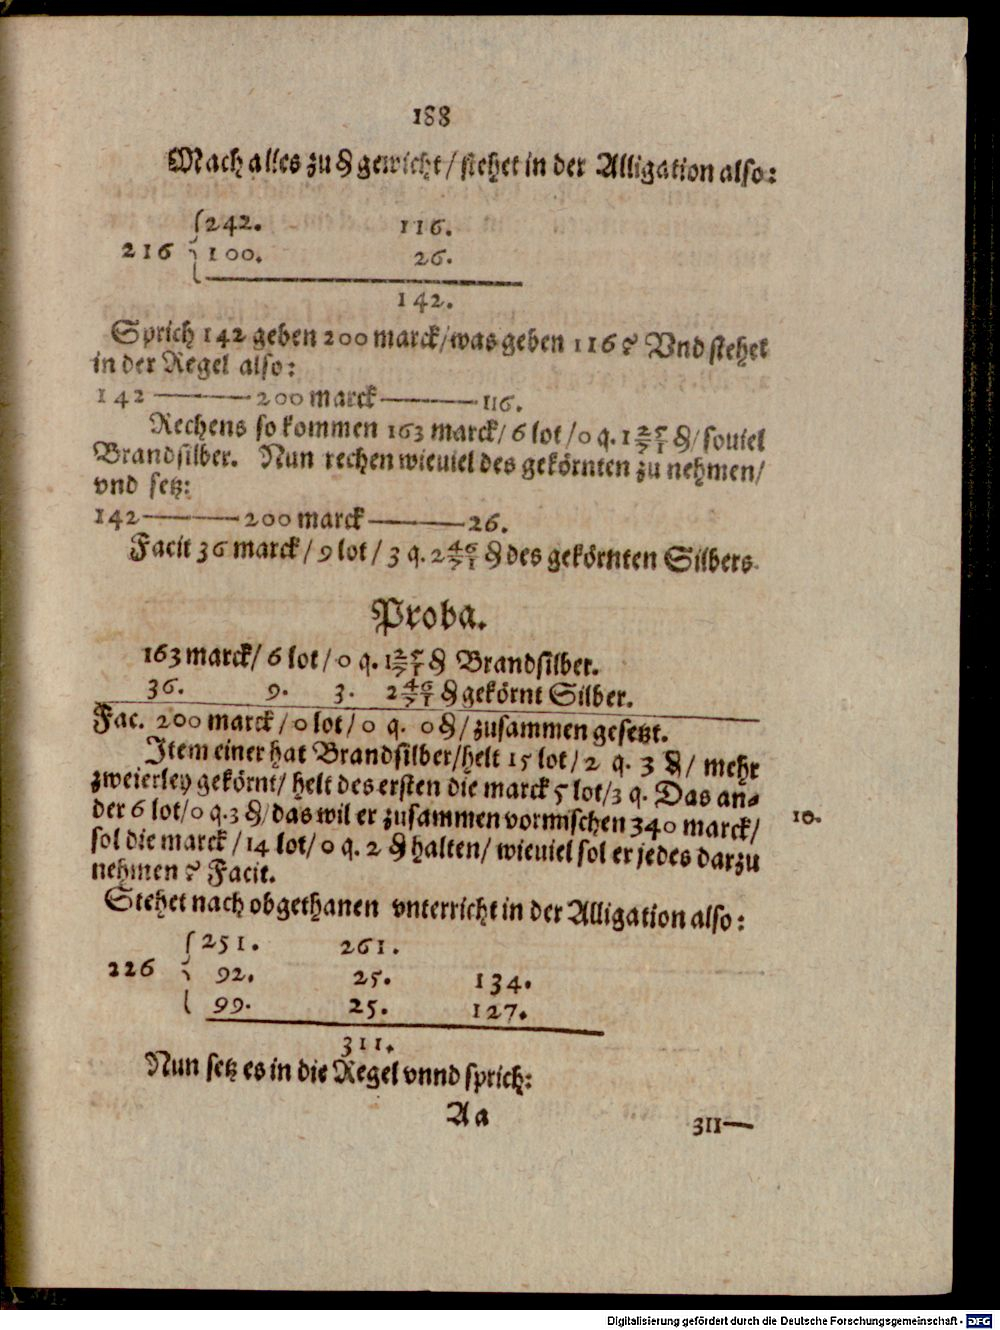 188
Mach alles zu ₰ gewicht / stehet in der Alligation also:
{242. 116.
216 100. 26.
142.
Sprich 142 geben 200 marck/was geben 116? Vnd stehet
in der Regel also:
142 ——— 200 marck ——— 116.
Rechens so kommen 163 marck/ 6 lot /0 q. 1 25/71 ₰/ souiel
Brandsilber. Nun rechen wieuiel des gekörnten zu nehmen/
vnd setz:
142 ——— 200 marck ——— 26.
Facit 36 marck / 9 lot / 3 q. 2 46/71 ₰ des gekörnten Silbers.
Proba.
163 marck/ 6 lot / 0 q. 1 25/71 ₰ Brandsilber.
36. 9. 3. 2 46/71 ₰ gekörnt Silber.
Fac. 200 marck / 0 lot / 0 q. 0 ₰ / zusammen gesetzt.
Item einer hat Brandsilber/helt 15 lot / 2 q. 3 ₰ / mehr
zweierley gekörnt/ helt des ersten die marck 5 lot/3 q. Das an-
der 6 lot/0 q.3 ₰/das wil er zusammen vormischen 340 marck/ 10.
sol die marck / 14 lot / 0 q. 2 ₰ halten/ wieuiel sol er jedes darzu
nehmen? Facit.
Stehet nach obgethanen vnterricht in der Alligation also:
{251. 261.
226 92. 25. 134.
99. 25. 127.
311.
Nun setz es in die Regel vnnd sprich:
Aa 311—
Digitalisierung gefördert durch die Deutsche Forschungsgemeinschaft - DFG